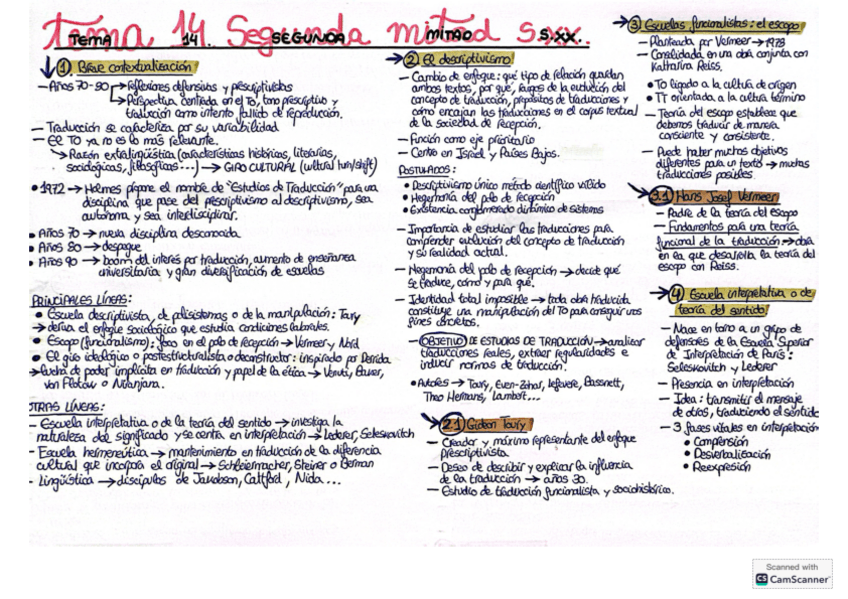 Tema 14. Segunda mitad S.XX.
TEMA 14. SEGUNDA MITAD S.XX.
1 Breve contextualización:
— Años 70-90 → Reflexiones defensivas y prescriptivistas
→ Perspectiva centrada en el TO, tono prescriptivo y
traducción como intento fallido de reproducción.
— Traducción se caracteriza por su variabilidad
— El TO ya no es lo más relevante.
↳ Razón extralingüística (características históricas, literarias,
sociológicas, filosóficas...) → GIRO CULTURAL (cultural turn/shift)
• 1972 → Holmes propone el nombre de "Estudios de Traducción" para una
disciplina que pase del prescriptivismo al descriptivismo, sea
autónoma y sea interdisciplinar.
• Años 70 → nueva disciplina desconocida
• Años 80 → despegue
• Años 90 → boom del interés por traducción, aumento de enseñanza
universitaria y gran diversificación de escuelas
PRINCIPALES LÍNEAS:
• Escuela descriptivista, de polisistemas o de la manipulación: Toury
→ deriva el enfoque sociológico que estudia condiciones laborales.
• Escopo (funcionalismo): foco en el polo de recepción → Vermeer y Nord
• El giro ideológico o postestructuralista o deconstructor: inspirado por Derrida
→ lucha de poder implícita en traducción y papel de la ética → Venuti, Baker,
von Flotow o Niranjana.
OTRAS LÍNEAS:
— Escuela interpretativa o de la teoría del sentido → investiga la
naturaleza del significado y se centra en interpretación → Lederer, Seleskovitch
— Escuela hermenéutica → mantenimiento en traducción de la diferencia
cultural que incorpora el original → Schleiermacher, Steiner o Berman
— Lingüística → discípulos de Jakobson, Catford, Nida...
2 El descriptivismo:
— Cambio de enfoque: qué tipo de relación guardan
ambos textos, por qué, rasgos de la evolución del
concepto de traducción, propósitos de traducciones y
cómo encajan las traducciones en el corpus textual
de la sociedad de recepción.
— Función como eje prioritario
— Centro en Israel y Países Bajos.
POSTULADOS:
• Descriptivismo único método científico válido
• Hegemonía del polo de recepción
• Existencia conglomerado dinámico de sistemas
— Importancia de estudiar las traducciones para
comprender evolución del concepto de traducción
y su realidad actual.
— Hegemonía del polo de recepción → decide qué
se traduce, cómo y para qué.
— Identidad total imposible → toda obra traducida
constituye una manipulación del TO para conseguir unos
fines concretos.
— OBJETIVO DE ESTUDIOS DE TRADUCCIÓN → analizar
traducciones reales, extraer regularidades e
inducir normas de traducción.
• Autores → Toury, Even-Zohar, Lefevere, Bassnett,
Theo Hermans, Lambert...
2.1 Gideon Toury
— Creador y máximo representante del enfoque
prescriptivista.
— Deseo de describir y explicar la influencia
de la traducción → años 30.
— Estudio de traducción funcionalista y sociohistórico.
3 Escuelas funcionalistas: el escopo
— Planteada por Vermeer → 1978
— Consolidada en una obra conjunta con
Katharina Reiss.
• TO ligado a la cultura de origen
• TT orientada a la cultura término
— Teoría del escopo establece que
debemos traducir de manera
consciente y consistente.
— Puede haber muchos objetivos
diferentes para un texto → muchas
traducciones posibles.
3.1 Hans Josef Vermeer
— Padre de la teoría del escopo
— Fundamentos para una teoría
funcional de la traducción → obra
en la que desarrolla la teoría del
escopo con Reiss.
4 Escuela interpretativa o de
teoría del sentido:
— Nace en torno a un grupo de
defensores de la Escuela Superior
de Interpretación de París:
Seleskovitch y Lederer
— Presencia en interpretación
— Idea: transmitir el mensaje
de otros, traduciendo el sentido
— 3 fases vitales en interpretación
• Comprensión
• Desverbalización
• Reexpresión
Scanned with
CS CamScanner